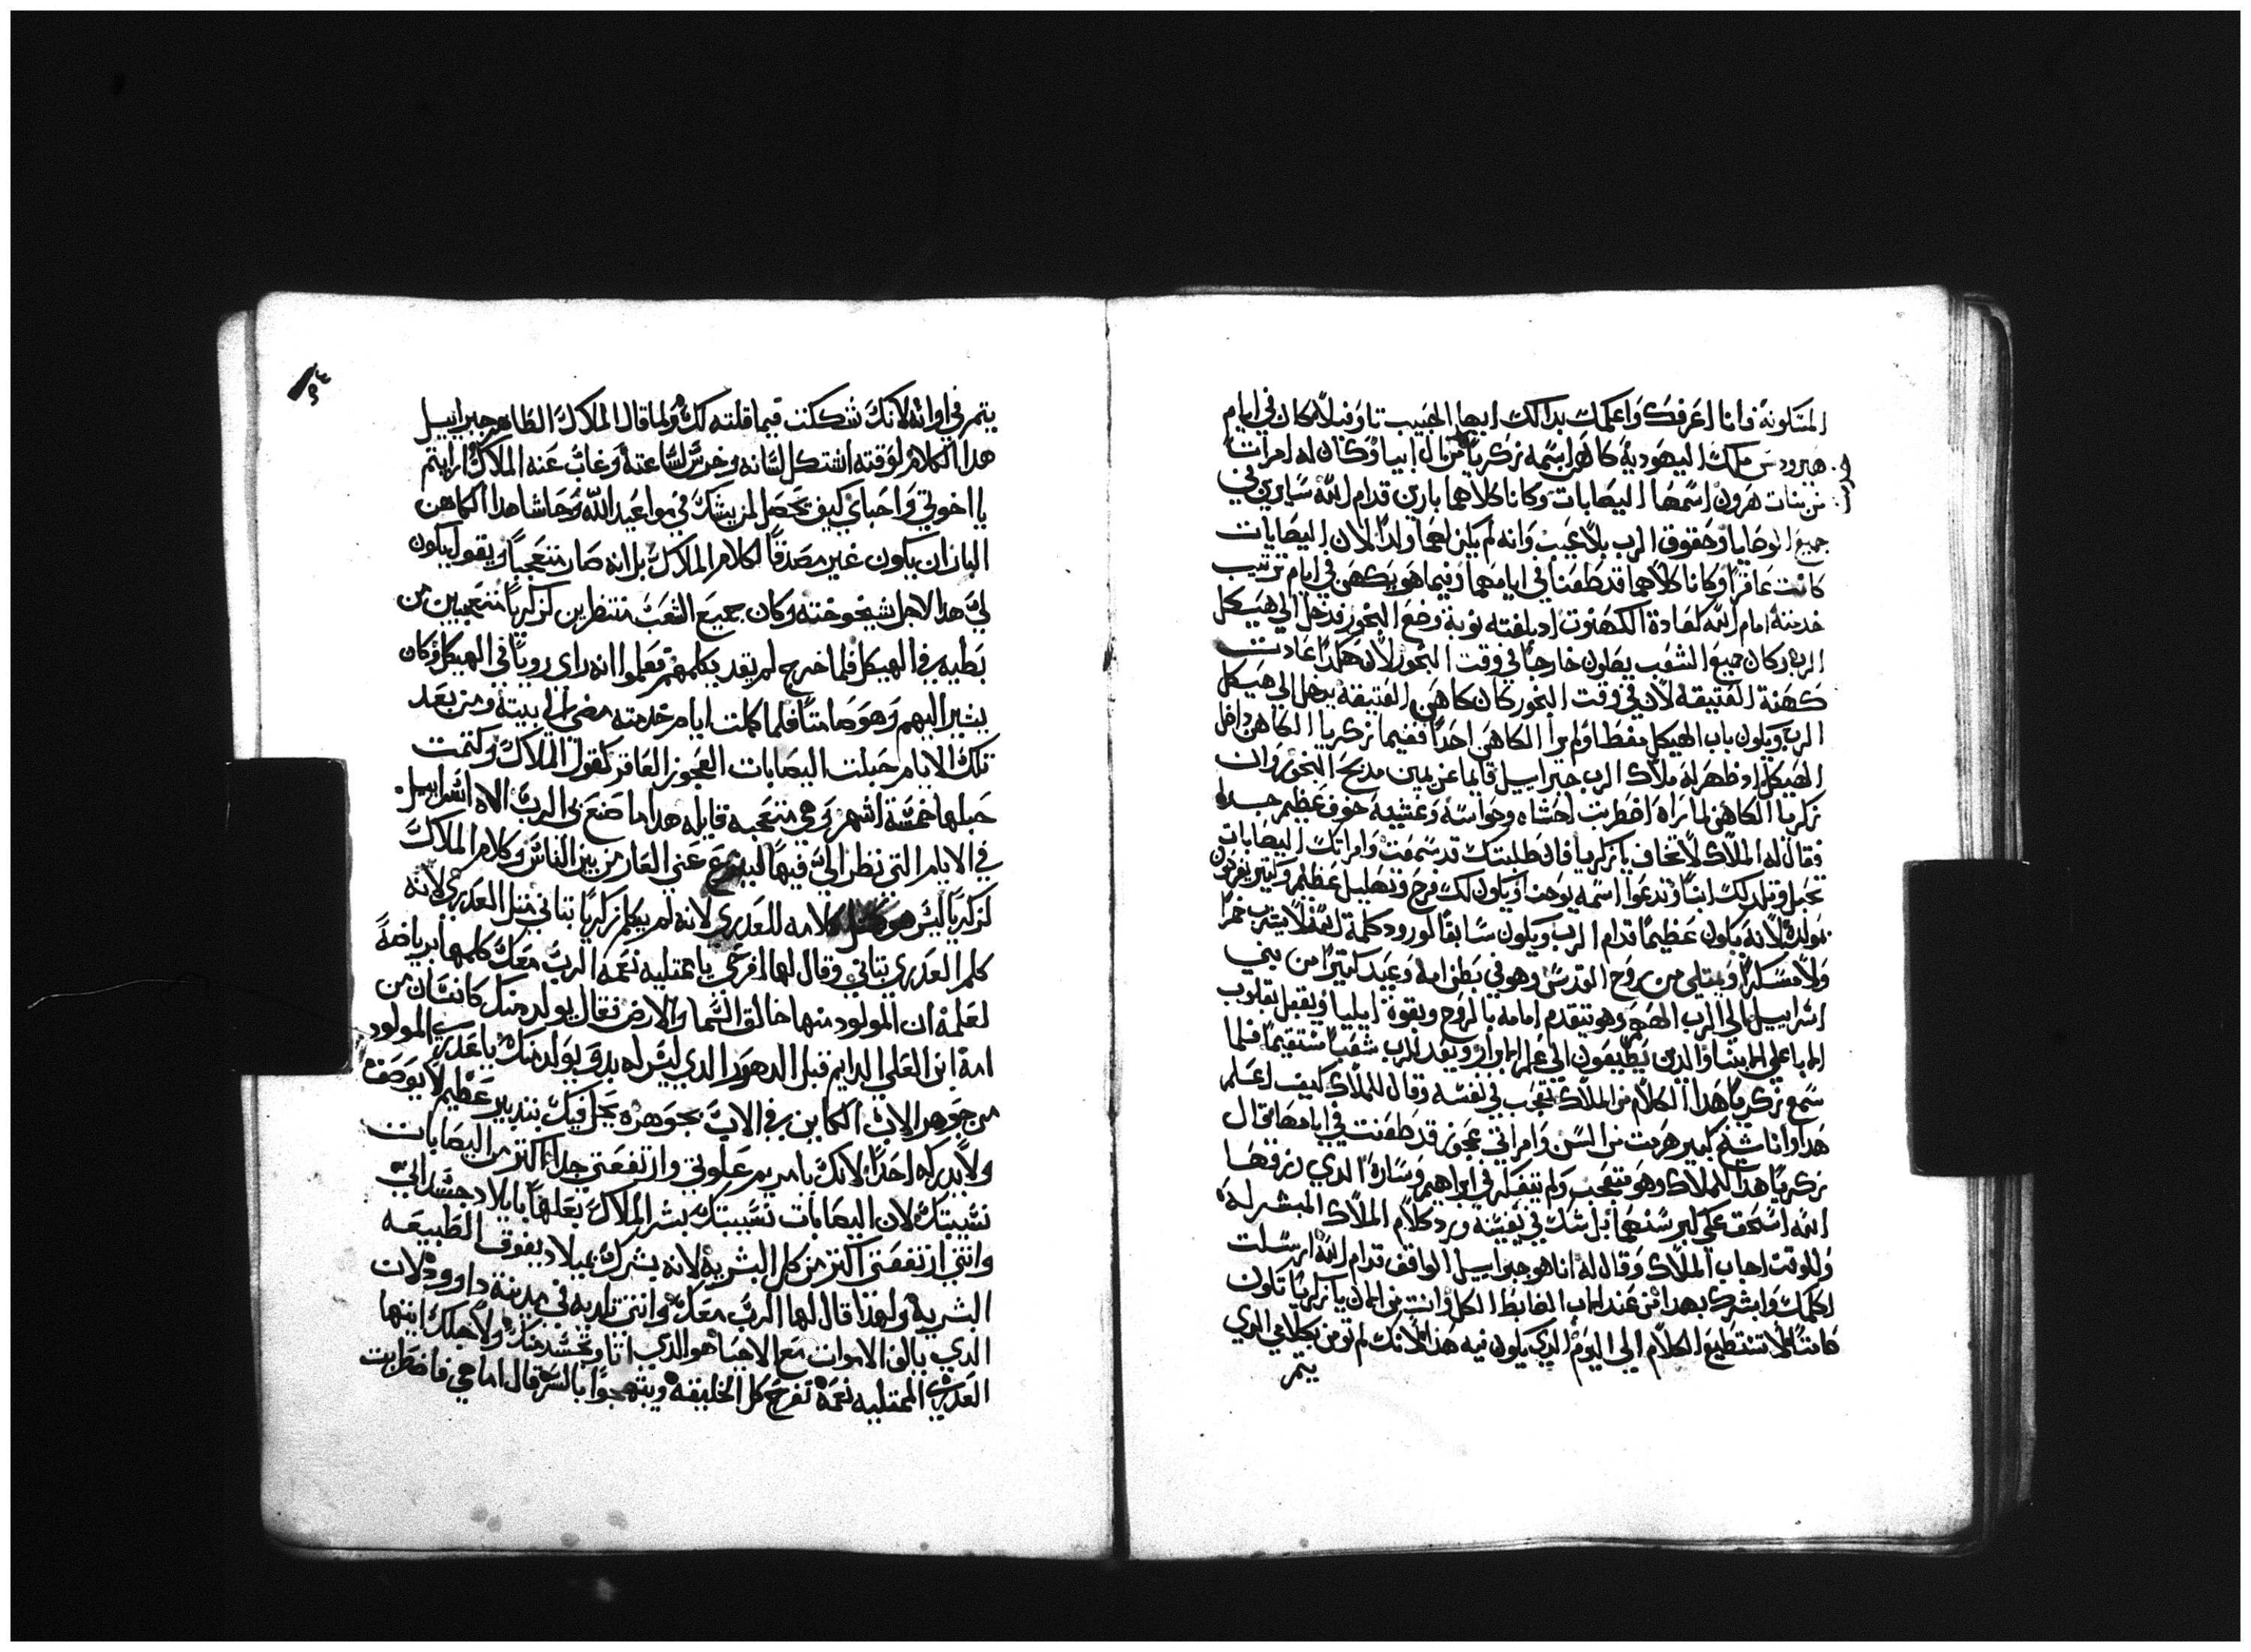 المتلونة فانا اعرفك واعلمك بدالك ايها الحبيب تاوفيلا كان في ايام
هيرودس ملك اليهودية كاهن اسمه زكريا من ال ابيا وكان له امرات
من بنات هرون اسمها اليصابات وكانا كلاهما بارين قدام الله سايرين في
جميع الوصايا وحقوق الرب بلا عيب وانه لم يكن لهما ولدا لان اليصابات
كانت عاقرا وكانا كلاهما قد طعنا في ايامهما وفيما هو يكهن في ايام ترتيب
خدمته امام الله كعادة الكهنوت اد بلغته نوبة وضع البخور فدخل الي هيكل
الرب وكان جميع الشعب يصلون خارجا في وقت البخور لان هكدا عادت
كهنة العتيقه لان في وقت البخور كان كاهن العتيقه يدخل الي هيكل
الرب ويكون باب الهيكل مغطا ولم يرا الكاهن احدا ففيما زكريا الكاهن داخل
الهيكل اد ظهر له ملاك الرب جبراييل قايما عن يمين مدبح البخور وان
زكريا الكاهن لما راه اضطربت احشاه وحواسه وغشيه خوف عظيم جدا
فقال له الملاك لا تخاف يا زكريا فان طلبتك قد سمعت وامراتك اليصابات
تحبل وتلد لك ابنا وتدعوا اسمه يوحنا ويكون لك فرح وتهليل عظيم وكتير يفرحون
بمولده لانه يكون عظيما قدام الرب ويكون سابقا لورود كلمة الله لا يشرب خمرا
ولا مسكرا ويمتلي من روح القدس وهو في بطن امه ويعيد كتيرا من بني
اسراييل الي الرب الههم وهو يتقدم امامه بالروح وبقوة ايليا ويقبل بقلوب
الابا علي الابنا والدين لا يطيعون الي علم الابرار ويعد للرب شعبا مستقيما فلما
سمع زكريا هدا الكلام من الملاك تعجب في نفسه وقال للملاك كيف اعلم
هدا وانا شيخ كبير هرمت من السن وامراتي عجوز قد طعنت في ايامها قال
زكريا هدا للملاك وهو متعجب ولم يتفكر في ابراهيم وسارة الدي رزقها
الله اسحق علي كبر سنهما بل شك في نفسه ورد كلام الملاك المبشر له
وللوقت اجاب الملاك وقال له انا هو جبراييل الواقف قدام الله ارسلت
اكلمك وابشرك بهدا من عند الاب الضابط الكل وانت من الان يا زكريا تكون
صامتا لا تستطيع الكلام الي اليوم الدي يكون فيه هدا لانك لم تومن بكلامي الدي
يتم
يتم في اوانه لانك شككت فيما قلته لك ولما قال الملاك الطاهر جبراييل
هدا الكلام لوقته اشتكل لسانه وخرس لساعته وغاب عنه الملاك ارايتم
يا اخوتي واحباي كيف يحصل لمن يشك في مواعيد الله وحاشا هدا الكاهن
البار ان يكون غير مصدقا لكلام الملاك بل انه صار متعجبا ويقول يكون
لي هدا لاجل شيخوخته وكان جميع الشعب منتظرين لزكريا متعجبين من
بطيه في الهيكل فلما خرج لم يقدر يكلمهم فعلموا انه راي رويا في الهيكل وكان
يشير اليهم وهو صامتا فلما كملت ايام خدمته مضي الي بيته ومن بعد
تلك الايام حبلت اليصابات العجوز العاقر كقول الملاك وكتمت
حبلها خمسة اشهر وهي متعجبه قايله هدا ما صنع بي الرب الاه اسراييل
في الايام التي نظر الي فيها لينزع عني العار من بين الناس وكلام الملاك
لزكريا ليس هو مثل كلامه للعدري لانه لم يكلم زكريا بتاني مثل العدري لانه
كلم العدري بتاني وقال لها افرحي يا ممتليه نعمه الرب معك كلمها برياضة
لعلمه ان المولود منها خالق السما والارض تعال يولد منك كانسان من
امة ابن العلي الدايم قبل الدهور الدي ليس له بدو يولد منك يا عدري المولود
من جوهر الاب الكاين في الاب بجوهره يحل فيك بتدبير عظيم لا يوصف
ولا يدركه احدا لانك يا مريم علوتي وارتفعتي جدا اكتر من اليصابات
نسيبتك لان اليصابات نسيبتك بشر الملاك بعلها بايلاد جسداني
وانتي ارتفعتي اكتر من كل البشرية لانه بشرك بميلاد يفوق الطبيعه
البشريه ولهدا قال لها الرب معك وانتي تلديه في مدينة داوود لان
الدي يالف الاموات مع الاحيا هو الدي اتا وتجسد منك ولاجلك ايتها
العدري الممتليه نعمة تفرح كل الخليقه ويبتهجوا بالسرة قال اما هي فاضطربت